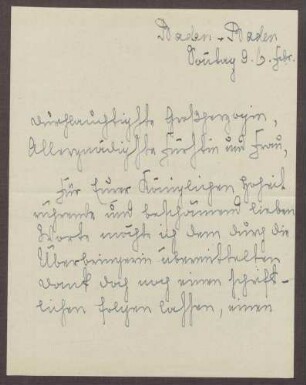 Baden-Baden
Sonntag d. 6. Febr.
Durchlauchtigste Großherzogin,
Allergnädigste Fürstin und Frau,
Für Eurer Königlichen Hoheit
rührende und beschämend lieben
Worte möchte ich dem durch die
Überbringerin übermittelten
Dank doch noch einen schrift-
lichen folgen lassen, einen